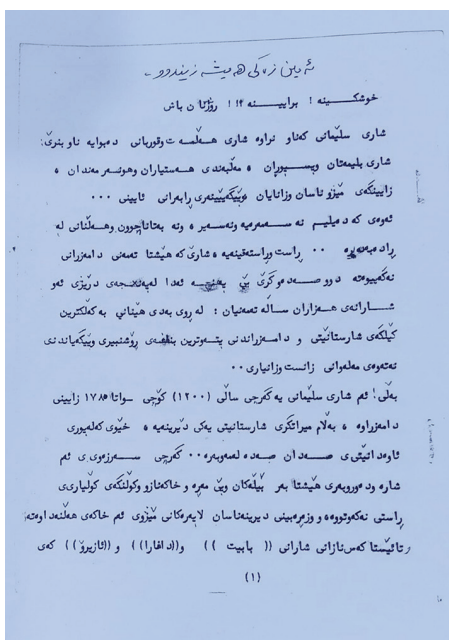 ئەمین زەکی هەمیشە زیندوو ..
خوشکینە ! براییـنە !! رۆژتان باش
شاری سلێمانی کەناو نراوە شاری هەڵمەت وقوربانی دەبوایە ناوبنرێ:
شاری بلیمەتان وپسپۆران ، مەڵبەندی هەستیاران وهونەرمەندان ،
زایینگەی مێژوناسان وزانایان وپێگەیێنەری ڕابەرانی ئایینی ...
ئەوەی کەدەیلیم نەسەمەرمیە ونەسەیر ، ونە بەتاناچوون وهەڵنانی لە
ڕادەبەدەرە .. ڕاست وڕاستەقینەیە ، شارێ کە هێشتا تەمەنی دامەزرانی
نەگەییوەتە دووصەد ئەدا لەپەنجەی درێژی ئەو
شارانەی هەزاران ساڵە تەمەنیان : لە ڕوی بەدی هێنانی بەکەڵکترین
کێلگەی شارستانیێتی و دامەزراندنی پتەوترین بناغەی ڕۆشنبیری وپێگەیاندنی
نەتەوەی مەلەوانی زانست وزانیاری..
بەڵی! ئەم شاری سلێمانی یە گەرچی ساڵی (١٢٠٠) کۆچی ــ واتا ١٧٨٥ زایینی
دامەزراوە ، بەڵام میراتگری شارستانیێتی یەکی دێرینەیە ، خێوی کەلەپوری
ئاوەدانیێتی ی صەدان صەدە لەمەوبەرە .. گەرچی سەرزەوی ی ئەم
شارە ودەوروبەری هێشتا بەر بێلەکان وپێ مەرە و خاکەنازو وکۆلنگەی کۆلیاری ی
ڕاستی نەکەوتووە ، و وزەرەبینی دیرینەناسان لاپەرەکانی مێژوی ئەم خاکەی هەڵنەداوەتە،
وتائێستا کەس نازانی شارانی (( بابیت )) و((دافارا)) و ((ئازیرۆ)) کەی
(١)